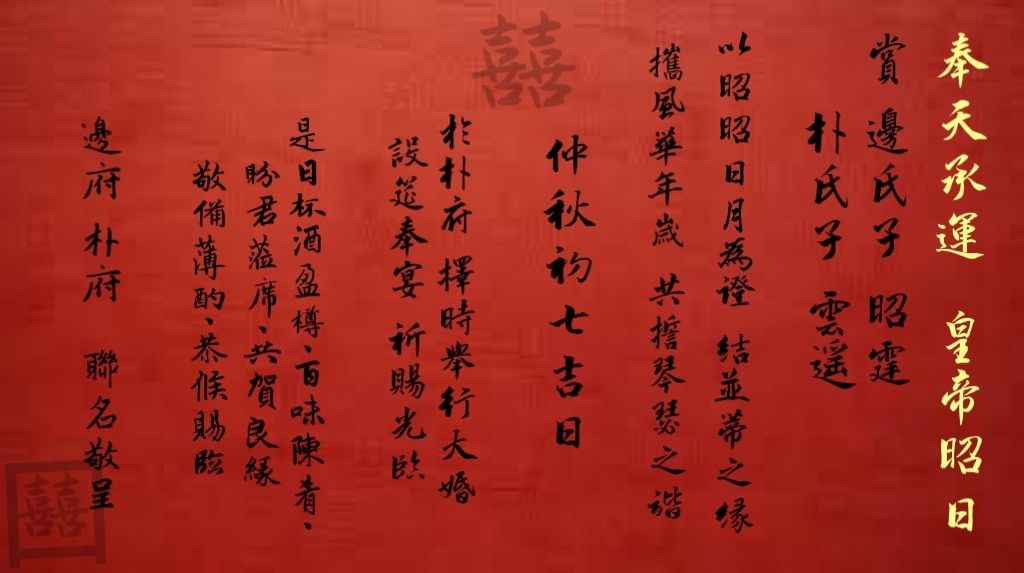 囍
奉天承運 皇帝昭日
賞 邊氏子 昭霆
朴氏子 雲遥
以昭昭日月為證 結並蒂之緣
攜風華年歲 共琴瑟之諧
仲秋初七吉日
於朴府 擇時舉行大婚
設筵奉宴 祈賜光臨
是日杯酒盈樽、百味陳肴、
盼君蒞席、共賀良緣
敬備薄酌、恭候賜臨
邊府朴府 聯名敬呈
囍